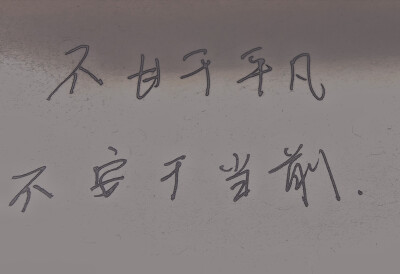 不甘于平凡
不安于当前.